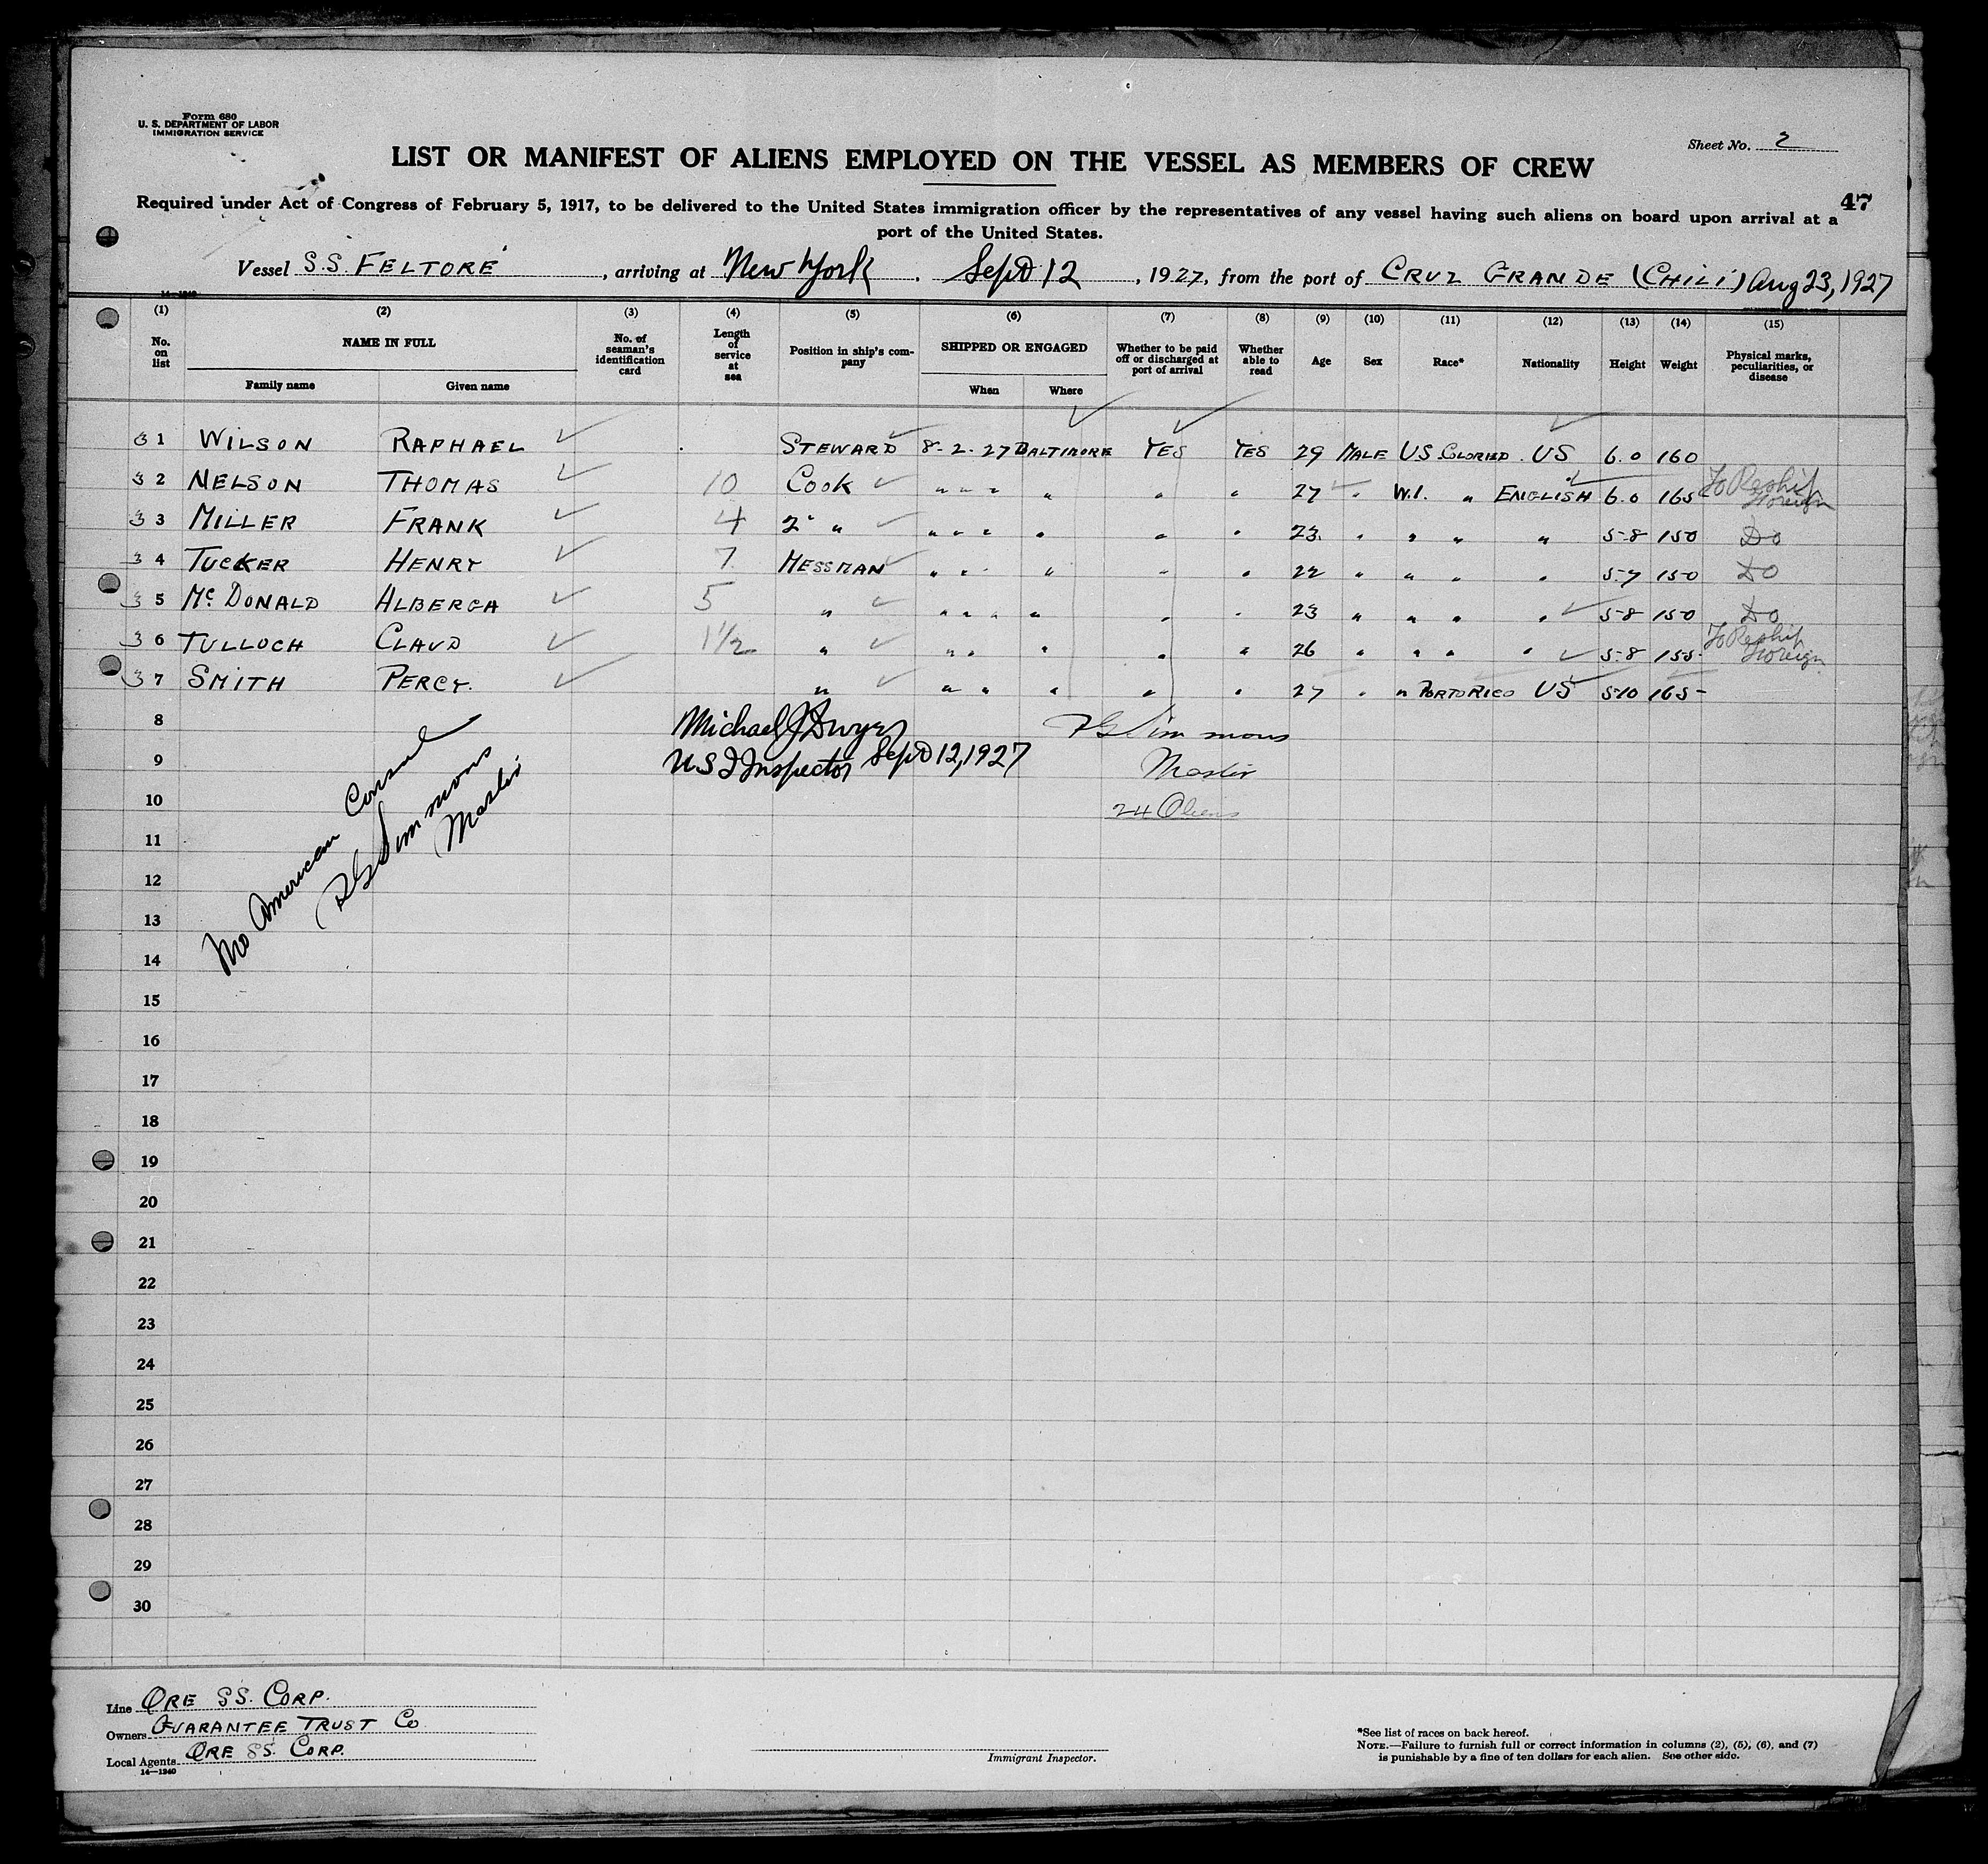 Form 680
U. S. DEPARTMENT OF LABOR
IMMIGRATION SERVICE
Sheet No. 2
LIST OR MANIFEST OF ALIENS EMPLOYED ON THE VESSEL AS MEMBERS OF CREW
47
Required under Act of Congress of February 5, 1917, to be delivered to the United States immigration officer by the representatives of any vessel having such aliens on board upon arrival at a
port of the United States.
Vessel S.S. FELTORE, arriving at New York. Sept 12, 1927, from the port of CRUZ GRANDE (CHILI) Aug 23, 1927
14—1240
(1) (2) (3) (4) (5) (6) (7) (8) (9) (10) (11) (12) (13) (14) (15)
No. on list NAME IN FULL No. of seaman's identification card Length of service at sea Position in ship's company SHIPPED OR ENGAGED Whether to be paid off or discharged at port of arrival Whether able to read Age Sex Race* Nationality Height Weight Physical marks, peculiarities, or disease
Family name Given name When Where
31 WILSON RAPHAEL STEWARD 8-2-27 BALTIMORE YES YES 29 MALE US COLORED US 6.0 160
32 NELSON THOMAS 10 COOK " " " " " " 27 " W.I. " ENGLISH 6.0 165 To Reship Foreign
33 MILLER FRANK 4 2" " " " " " " " 23 " " " " 5-8 150 Do
34 TUCKER HENRY 7 MESSMAN " " " " " " 22 " " " " 5-7 150 Do
35 McDONALD ALBERGA 5 " " " " " " " 23 " " " " 5-8 150 Do
36 TULLOCH CLAUD 1 1/2 " " " " " " 26 " " " " 5-8 155 To Reship Foreign
37 SMITH PERCY. " " " " " " 27 " " PORTO RICO US 5-10 165-
8 Michael J Dwyer Simmons
9 U S I Inspector Sept 12, 1927 Master
10 24 Aliens
No American Consul
Simmons
Master
11
12
13
14
15
16
17
18
19
20
21
22
23
24
25
26
27
28
29
30
Line ORE SS. CORP.
Owners GUARANTEE TRUST Co
Local Agents ORE SS. CORP.
14—1240
Immigrant Inspector.
*See list of races on back hereof.
NOTE.—Failure to furnish full or correct information in columns (2), (5), (6), and (7)
is punishable by a fine of ten dollars for each alien. See other side.